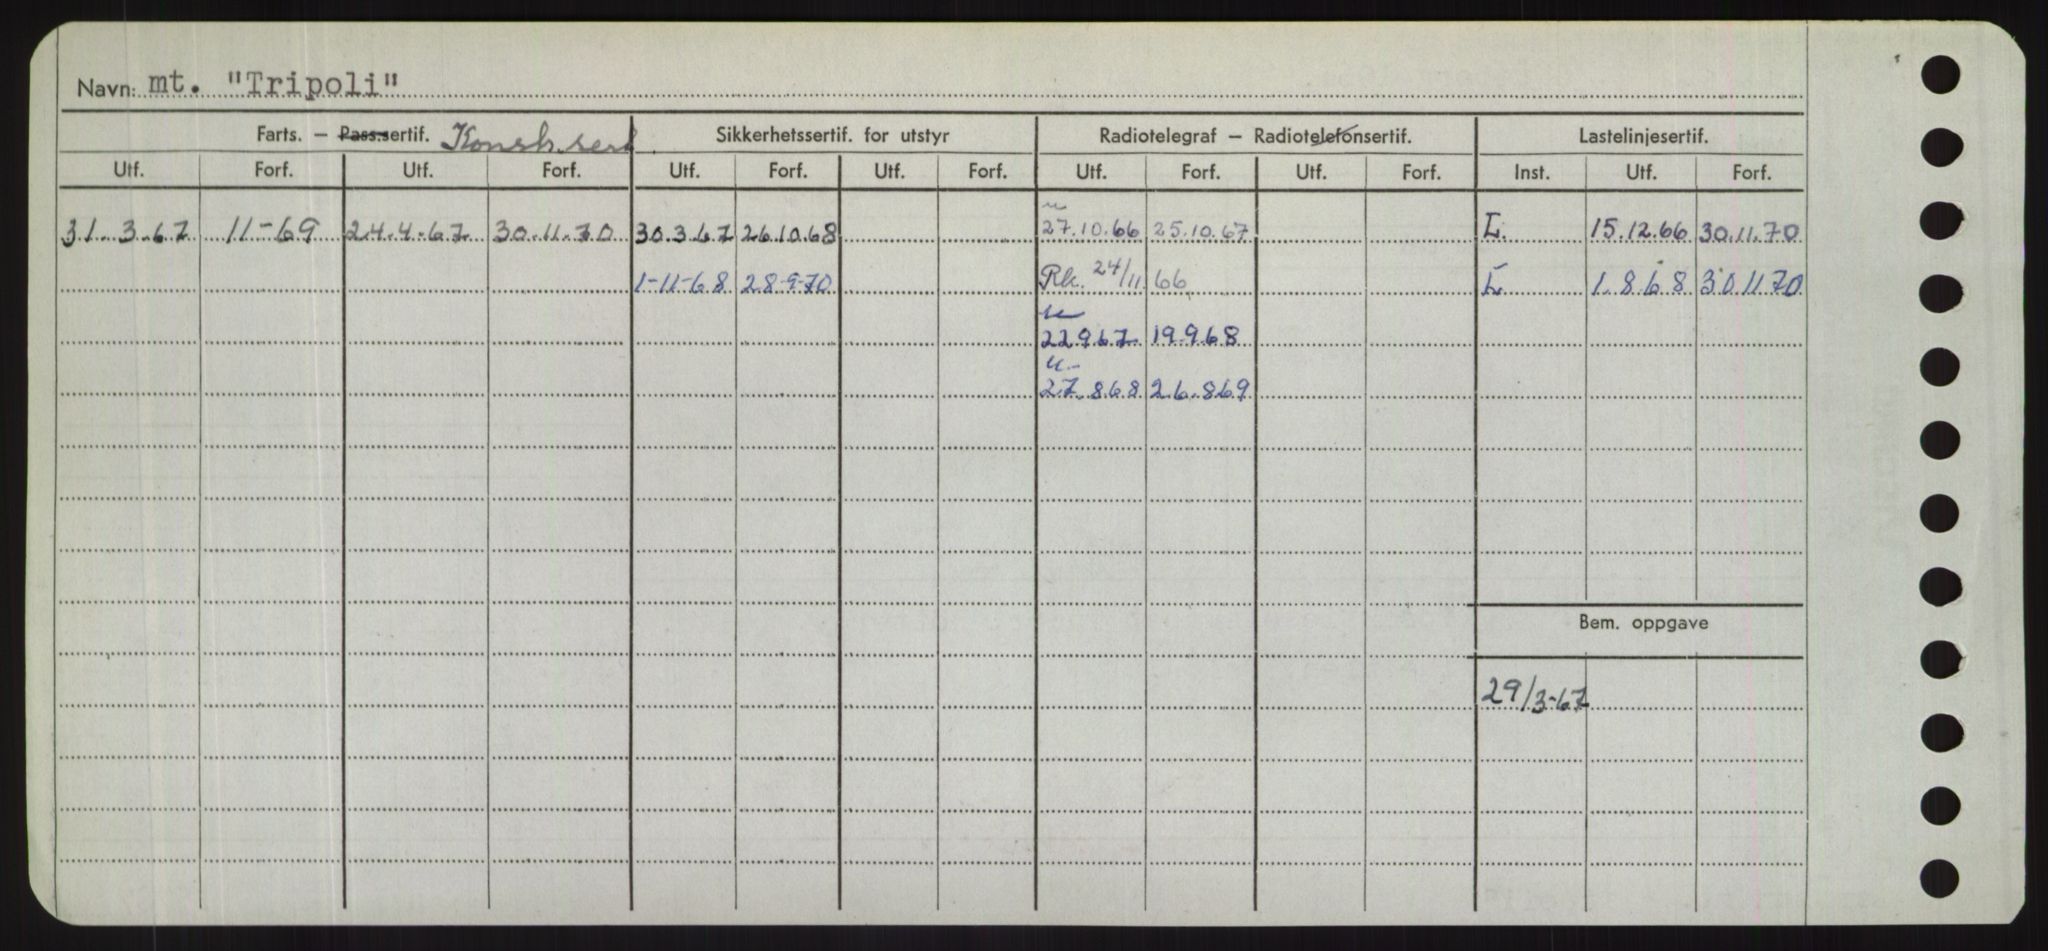 Navn: mt. "Tripoli"
Farts. — Pass.sertif. Konstr.sert. Sikkerhetssertif. for utstyr Radiotelegraf — Radiotelefonsertif. Lastelinjesertif.
Utf. Forf. Utf. Forf. Utf. Forf. Utf. Forf. Utf. Forf. Utf. Forf. Inst. Utf. Forf.
u
31.3.67 11-69 24.4.67 30.11.70 30.3.67 26.10.68 27.10.66 25.10.67 L. 15.12.66 30.11.70
1-11-68 28-9-70 Rk. 24/11 66 L 1.8.68 30.11.70
u
22.9.67 19.9.68
u
27.8.68 26.8.69
Bem. oppgave
29/3-67